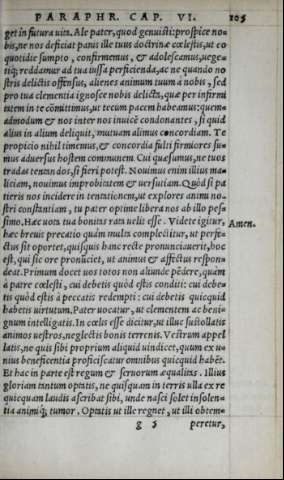 PARAPHR. CAP. VI. 105
get in futura uita. Ale pater, quod genuisti: prospice no-
bis, ne nos deficiat panis ille tuus doctrinæ cœlestis, ut co
quotidie sumpto, confirmemur, & adolescamus, uege-
tiq; reddamur ad tua iussa perficienda, ac ne quando no
stris delictis offensus, alienes animum tuum à nobis, sed
pro tua clementia ignosce nobis delicta, quæ per infirmi
tatem in te cõmittimus, ut tecum pacem habeamus: quem
admodum & nos inter nos inuicẽ condonantes, si quid
alius in alium deliquit, mutuam alimus concordiam. Te
propicio nihil timemus, & concordia fulti firmiores su-
mus aduersus hostem communem. Cui quæsumus, ne tuos
tradas tentandos, si fieri potest. Nouimus enim illius ma-
liciam, nouimus improbitatem & uersutiam. Quòd si pa
tieris nos incidere in tentationem, ut explores animi no-
stri constantiam, tu pater optime libera nos ab illo pes-
simo. Hæc uota tua bonitas rata uelit esse. Videte igitur,
Amen.
hæc breuis precatio quàm multa complectitur, ut perfe-
ctus sit oportet, quisquis hanc rectè pronunciauerit, hoc
est, qui sic ore pronũciet, ut animus & affectus respon-
deat. Primum docet uos totos non aliunde pẽdere, quàm
à patre cœlesti, cui debetis quòd estis conditi: cui debe-
tis quòd estis à peccatis redempti: cui debetis quicquid
habetis uirtutum. Pater uocatur, ut clementem ac beni-
gnum intelligatis. In cœlis esse dicitur, ut illuc sustollatis
animos uestros, neglectis bonis terrenis. Vestrum appel
latis, ne quis sibi proprium aliquid uindicet, quum ex u-
nius beneficentia proficiscatur omnibus quicquid habẽt.
Et hac in parte est regum & seruorum æqualitas. Illius
gloriam tantum optatis, ne quisquam in terris ulla ex re
quicquam laudis ascribat sibi, unde nasci solet insolen-
tia animiq; tumor. Optatis ut ille regnet, ut illi obtem-
g 5 peretur,